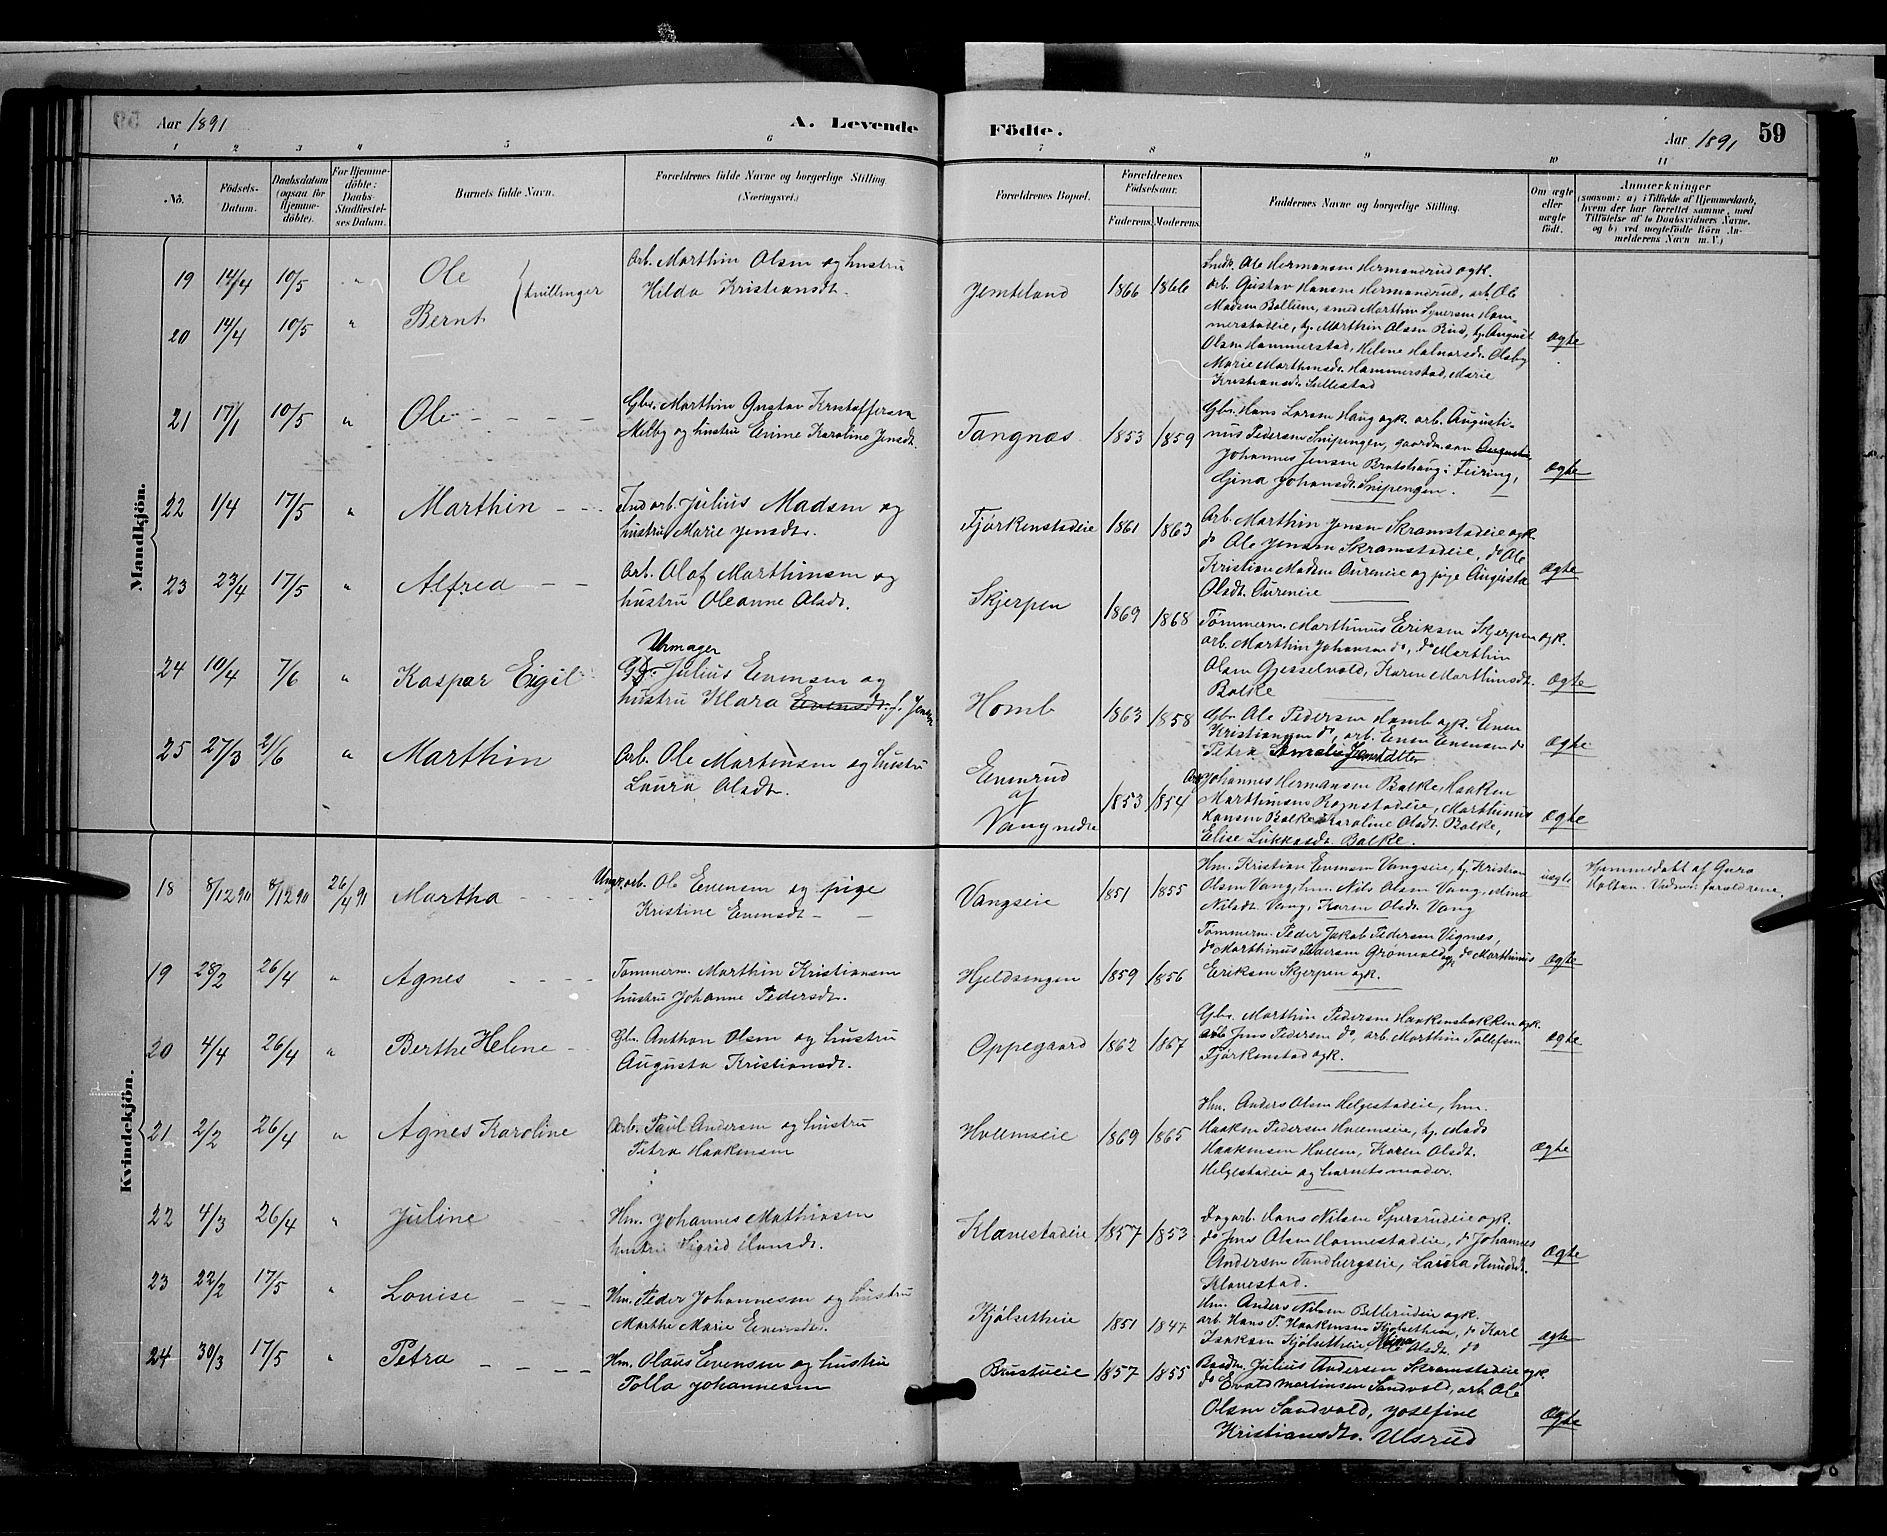 Aar 1891
A. Levende
Födte.
Aar 1891
59
1 2 3 4 5 6 7 8 9 10 11
No.
Födsels-Datum.
Daabsdatum (ogsaa for Hjemmedöbte).
For Hjemmedöbte: Daabs-Stadfæstelses Datum.
Barnets fulde Navn.
Forældrenes fulde Navne og borgerlige Stilling. (Næringsvei.)
Forældrenes Bopæl.
Forældrenes Födselsaar.
Faderens. Moderens.
Faddernes Navne og borgerlige Stilling.
Om ægte eller uægte födt.
Anmærkninger
(saasom: a) i Tilfælde af Hjemmedaab, hvem der har forrettet samme, med Tilföielse af to Daabsvidners Navne, og b) ved uægtefödte Börn Anmelderens Navn m. V.)
Mandkjön.
19 14/4 10/5 " Ole
20 14/4 10/5 " Bernt
tvillinger
Arb. Marthin Olsen og hustru
Hilda Kristiansdt.
Jemteland 1866 1866
Smdk. Ole Hermansen Hermandrud og k.
arb. Gustav Hansen Hermandrud, arb. Ole
Madsen Bollum, smed Marthin Syversen Ham-
merstadeie, tj. Marthin Olsen Rud, tj. August
Olsen Hammerstad, Helene Halvorsdt. Olsby
Marie Marthinsdt. Hammerstad, Marie
Kristiansdt. Sullestad
ægte
21 17/1 10/5 " Ole
Gbr. Marthin Gustav Kristoffersen
Melby og hustru Evine Karoline Jensdt.
Tangnæs 1853 1859
Gbr. Hans Larsen Haug og k. arb. Augusti-
nus Pedersen Snipengen, gaardm. søn
Johannes Jensen Bratshaug i Feiring,
Gina Johansdt. Snipengen.
ægte
22 1/4 17/5 " Marthin
Ind. arb. Julius Madsen og
hustru Marie Jensdt.
Fjørkenstadeie 1861 1863
Arb. Marthin Jensen Skramstadeie og k.
do Ole Jensen Skramstadeie, do Ole
Kristian Madsen Aureneie og pige Augusta
Olsdt. Aureneie
ægte
23 23/4 17/5 " Alfred
Arb. Olaf Marthinsen og
hustru Oleanne Olsdt.
Skjerpen 1869 1868
Tømmerm. Marthinus Eriksen Skjerpen og k.
arb. Marthin Johansen do, do Marthin
Olsen Gjesselvold, Karen Marthinsdt.
Balke
ægte
24 10/4 7/6 " Kaspar Eigil
Urmager
Julius Evensen og
hustru Klara Evensdt. f. Jensen
Homb 1863 1858
Gbr. Ole Pedersen Homb og k. Even
Kristiansen do, arb. Even Evensen do
Petra Amalie Jensdatter
ægte
25 27/3 21/6 " Marthin
Arb. Ole Martinsen og hustru
Laura Olsdt.
Evenrud
af
Vang nedre 1853 1854
Arb. Johannes Hermansen Balke, Haaken
Marthinsen Rognstadeie, Marthinus
Hansen Balke, Karoline Olsdt. Balke,
Elise Lukkasdt. Balke.
ægte
Kvindekjön.
18 8/12 90 8/12 90 26/4 91 Martha
Ungk. arb. Ole Evensen og pige
Kristine Evensdt.
Vangseie 1851 1855
Hm. Kristian Evensen Vangseie, tj. Kristian
Olsen Vang, hm. Nils Olsen Vang, Mina
Nilsdt. Vang, Karen Olsdt. Vang
uægte
Hjemmedøbt af Guro
Holtan. Vidner: forældrene.
19 28/2 26/4 " Agnes
Tømmerm. Marthin Kristiansen
hustru Johanne Pedersdt.
Hjeldsengen 1859 1856
Tømmerm. Peder Jakob Pedersen Vignes,
do Marthinus Pedersen Grønvold og k. do Marthinus
Eriksen Skjerpen og k.
ægte
20 4/4 26/4 " Berthe Helene
Gbr. Anthon Olsen og hustru
Augusta Kristiansdt.
Oppegaard 1862 1867
Gbr. Marthin Pedersen Haakensbakken og k.
arb. Jens Pedersen do, arb. Marthin Tollefsen
Fjørkenstad og k.
ægte
21 2/2 26/4 " Agnes Karoline
Arb. Paul Andersen og hustru
Petra Haakensen
Hvemseie 1869 1865
Hm. Anders Olsen Helgestadeie, hm.
Haaken Pedersen Hvemseie, tj. Mads
Haakensen Hveem, Karen Olsdt.
Helgestadeie og barnets moder.
ægte
22 4/3 26/4 " Juline
Hm. Johannes Mathiasen
hustru Sigrid Hansdt.
Klævestadeie 1857 1853
Dagarb. Hans Nilsen Spersrudeie og k.
do Jens Olsen Hannestadeie, do Johannes
Andersen Sandbergseie, Laura Knudsdt.
Klævestad.
ægte
23 22/2 17/5 " Lovise
Hm. Peder Johannesen og hustru
Marthe Marie Evensdt.
Kjølsetheie 1851 1847
Hm. Anders Nilsen Bellerudeie og k.
arb. Hans P. Haakensen Kjølsetheie, do Karl
Isaksen Kjølsetheie, Olsdt. do
ægte
24 30/3 17/5 " Petra
Hm. Olaus Evensen og hustru
Tolla Johannesen
Brustueie 1857 1855
Baadm. Julius Andersen Skramstadeie og k.
do Evald Martinsen Sandvold, arb. Ole
Olsen Sandvold, Josefine
Kristiansdt. Ulsrud
ægte